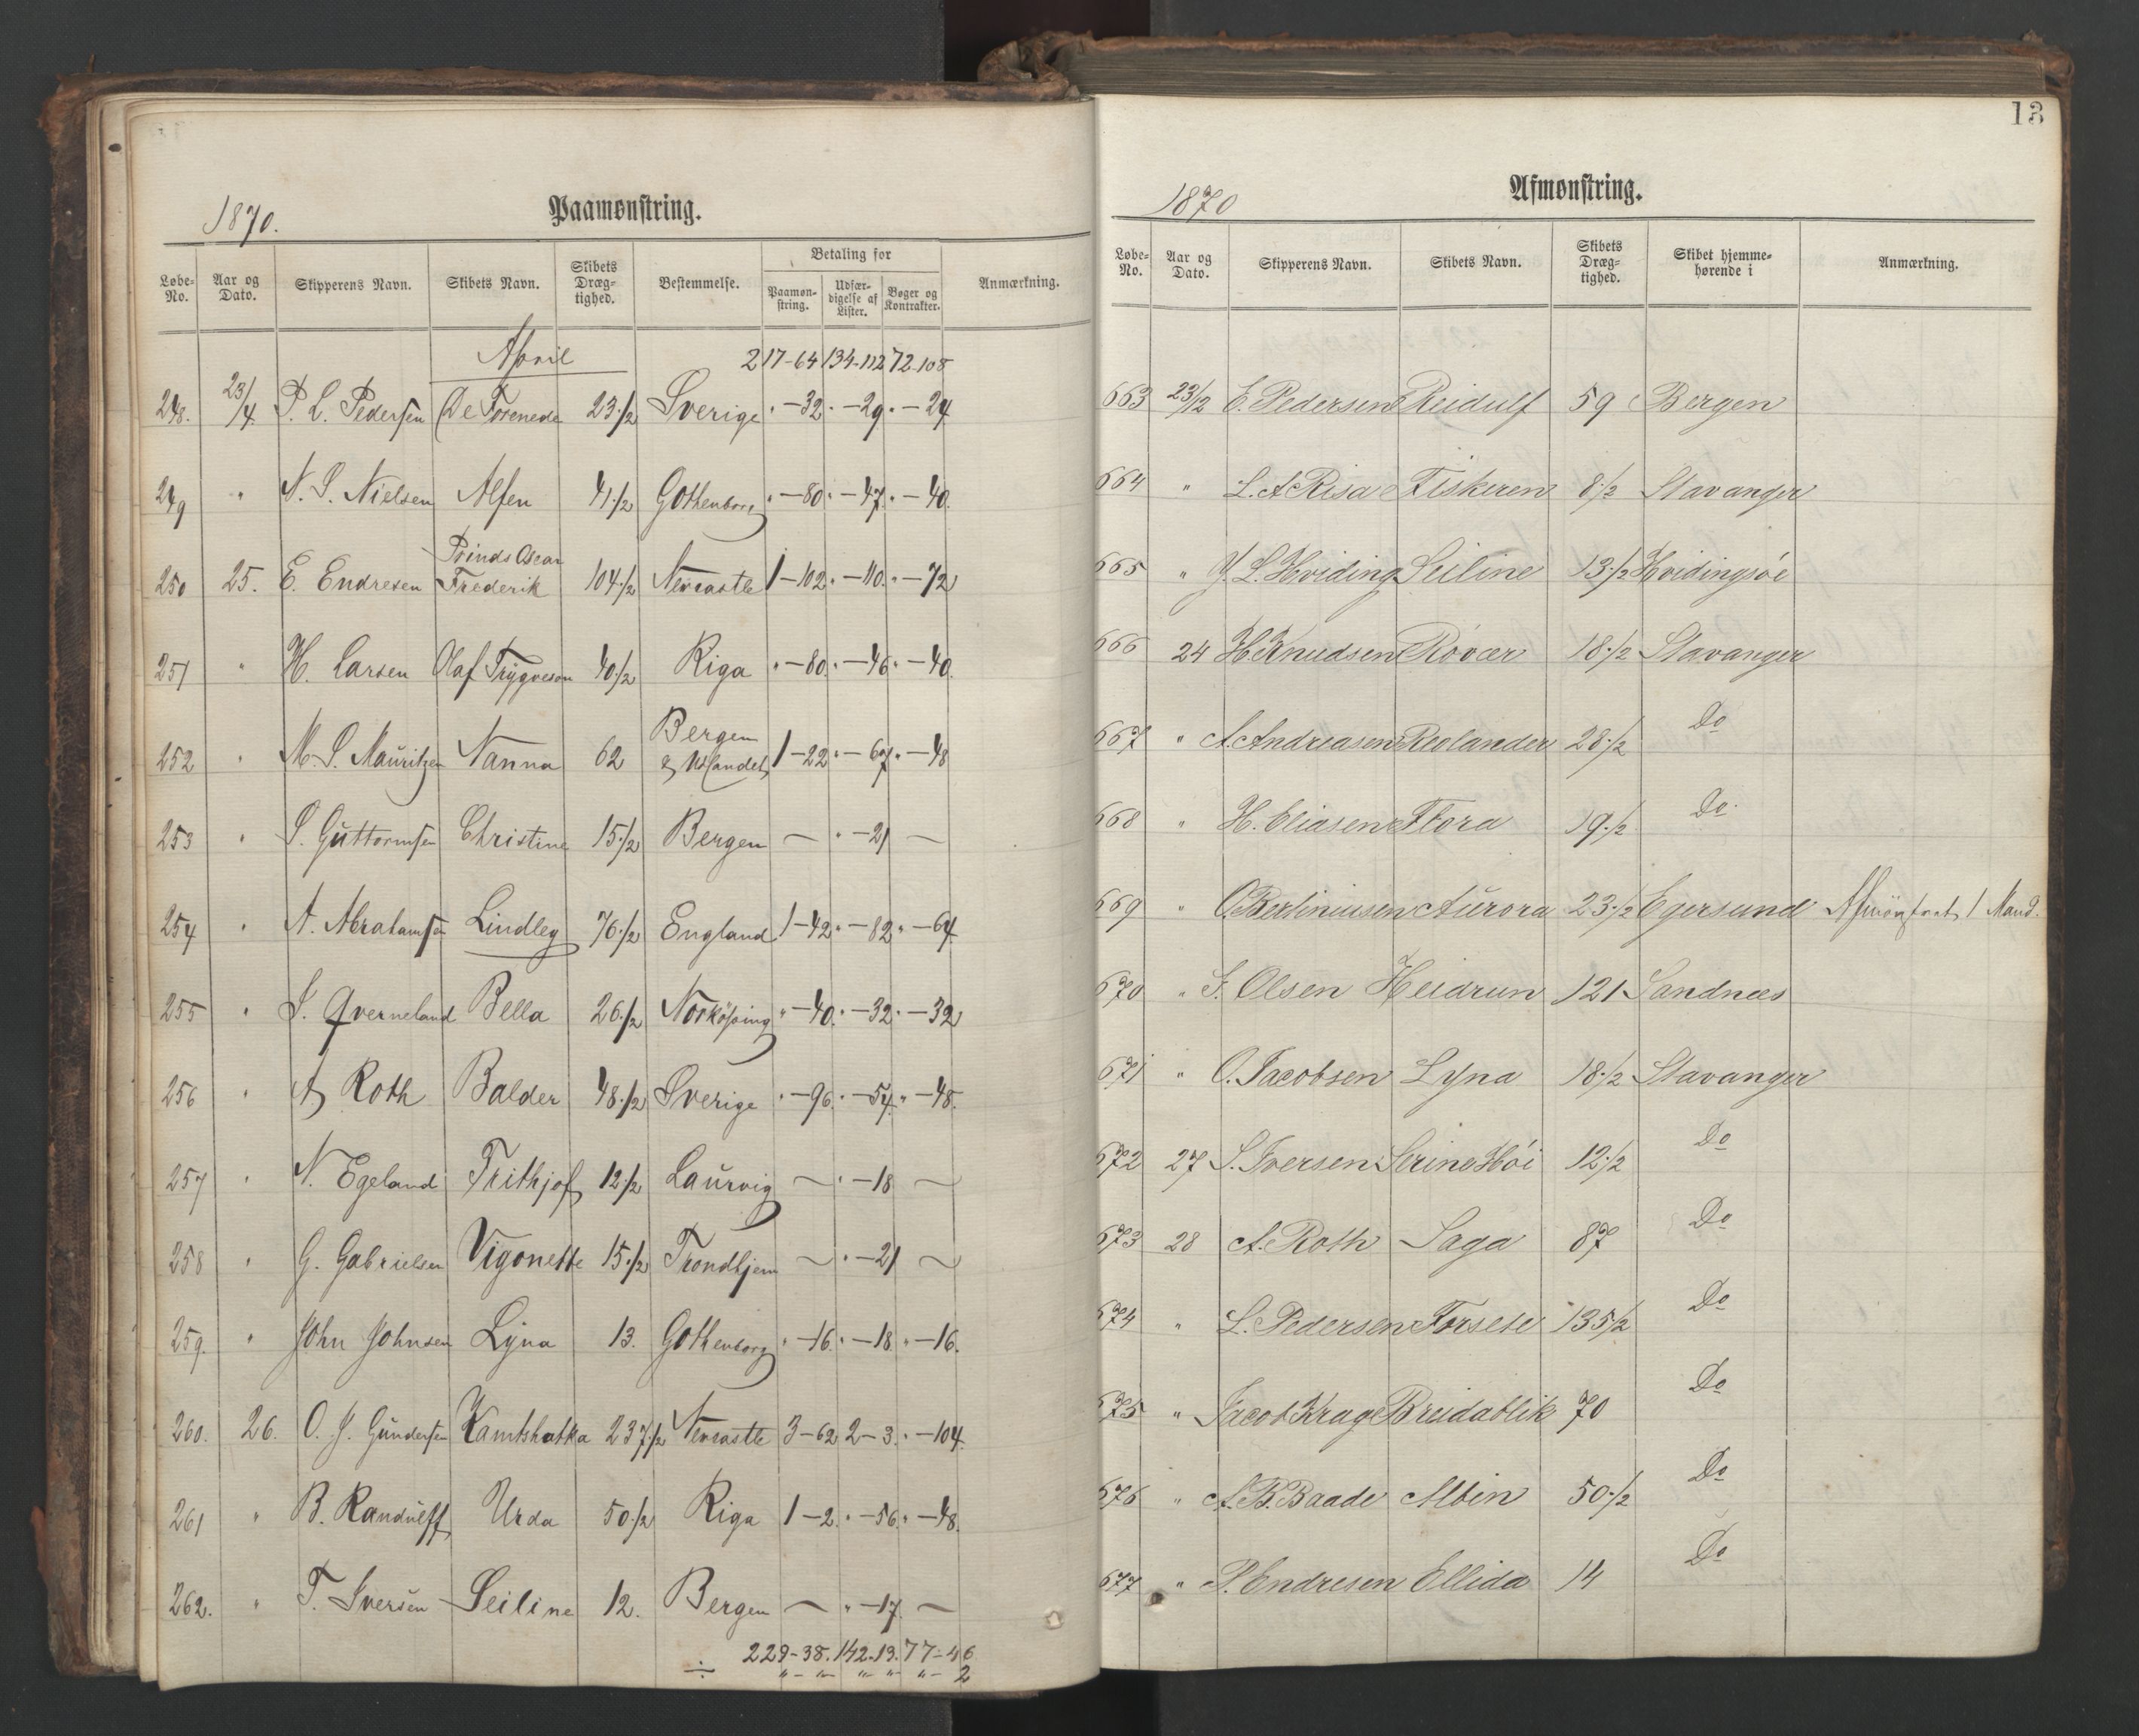 1870.
Paamønstring.
Løbe-No. Aar og Dato. Skipperens Navn. Skibets Navn. Skibets Dræg-tighed. Bestemmelse. Betaling for Paamøn-string. Udfær-digelse af Lister. Bøger og Kontrakter. Anmærkning.
April 217-64 134-112 72-108
248. 23/4 P. L. Pedersen De Forenede 23 1/2 Sverige " -32 " -29 " -24
249 " N. S. Nielsen Alfen 41 1/2 Gothenborg " -80 " -47 " -40.
250 25. E. Endresen Prinds Oscar Frederik 104 1/2 Newcastle 1-102 " -110 " -72
251 " H. Larsen Olaf Trygveson 40 1/2 Riga " -80 " -46 " -40.
252 " M. S. Mauritzen Nanna 62 Bergen & Udlandet 1-22 " -67 " -48
253 " S. Guttormsen Christine 15 1/2 Bergen — " -21 —
254 " A. Abrahamsen Lindley 76 1/2 England 1-42 " -82 " -64
255 " S. Qverneland Bella 26 1/2 Norköping " -40 " -32 " -32
256 " A Roth Balder 48 1/2 Sverige " -96 " -54 " -48.
257 " N. Egeland Frithjof 12 1/2 Laurvig — " -18 —
258 " G. Gabrielsen Vigonette 15 1/2 Trondhjem — " -21 —
259. " John Johnsen Lyna 13. Gothenborg " -16 " -18 " -16.
260. 26. O. J. Gundersen Kamtshatka 237 1/2 Newcastle 3-62 2-3 " -104
261 " B. Randulff Urda 50 1/2 Riga 1-2 " -56 " -48.
262. " T. Iversen Seiline 12. Bergen — " -17 —
229-38. 142-13. 77-46
÷ "-" "-" "- 2
13
1870
Afmønstring.
Løbe-No. Aar og Dato. Skipperens Navn. Skibets Navn. Skibets Dræg-tighed. Skibet hjemme-hørende i Anmærkning.
663 23/12 E. Pedersen Reidulf 59 Bergen
664 " L. A Risa Fiskeren 8 1/2 Stavanger
665 " Y. L. Hviding Seiline 13 1/2 Hvidingsöe
666 24 H Knudsen Rövær 18 1/2 Stavanger
667 " A. Andreasen Reolander 28 1/2 Do
668 " H. Eliasen Flora 19 1/2 Do
669 " O. Berliniusen Aurora 23 1/2 Egersund Afmönstret 1 Mand.
670 " S. Olsen Heidrun 121 Sandnæs
671 " O. Jacobsen Lyna 18 1/2 Stavanger
672 27 S. Iversen Serine Höi 12 1/2 Do
673 28 A. Roth Saga 87 Do
674 " L. Pedersen Forsete 135 1/2 Do
675 " Jacob Krage Breidablik 70 Do
676 " A. B. Baade Albin 50 1/2 Do
677 " P. Endresen Ellida 14 Do